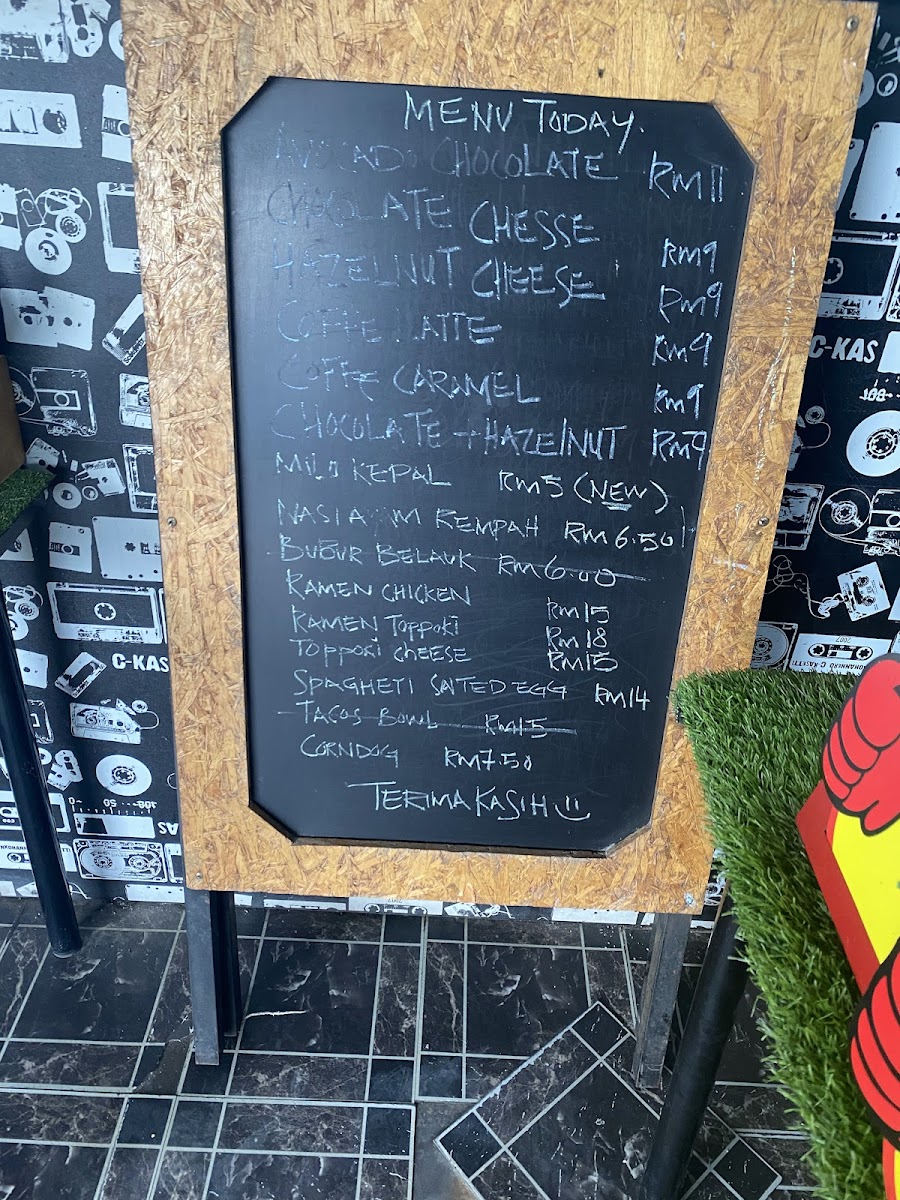 MENU TODAY.
AVOCADO CHOCOLATE RM11
CHOCOLATE CHESSE RM9
HAZELNUT CHEESE RM9
COFFE LATTE RM9
COFFE CARAMEL RM9
CHOCOLATE + HAZELNUT RM9
MILO KEPAL RM5 (NEW)
NASI AYAM REMPAH RM6.50
BUBUR BELAUK RM6.00
RAMEN CHICKEN RM15
RAMEN TOPPOKI RM18
TOPPOKI CHEESE RM15
SPAGHETI SALTED EGG RM14
TACOS BOWL RM15
CORNDOG RM7.50
TERIMA KASIH
C-KAS
C-KAS
2007